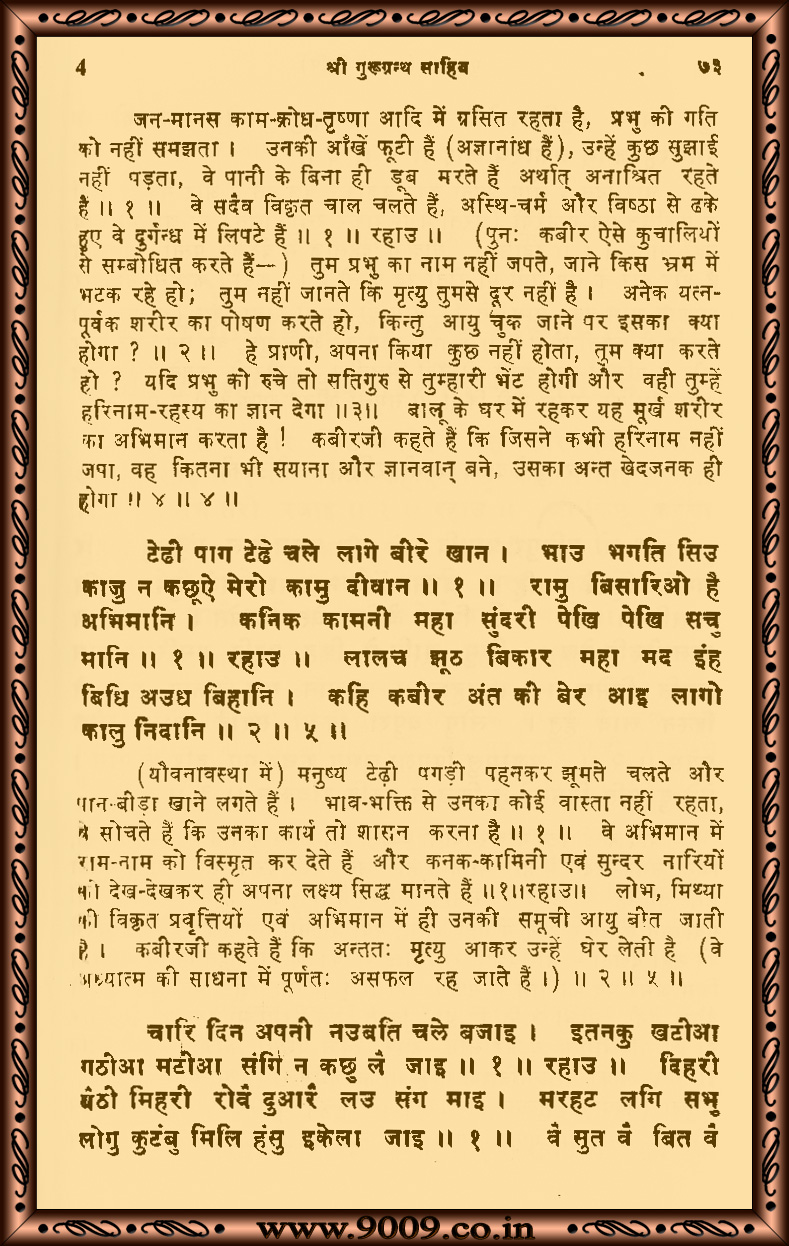 4 श्री गुरूग्रन्थ साहिब ७३
जन-मानस काम-क्रोध-तृष्णा आदि में ग्रसित रहता है, प्रभु की गति
को नहीं समझता । उनकी आँखें फूटी हैं (अज्ञानांध हैं), उन्हें कुछ सुझाई
नहीं पड़ता, वे पानी के बिना ही डूब मरते हैं अर्थात् अनाश्रित रहते
हैं ॥ १ ॥ वे सदैव विकृत चाल चलते हैं, अस्थि-चर्म और विष्ठा से ढके
हुए वे दुर्गन्ध में लिपटे हैं ॥ १ ॥ रहाउ ॥ (पुनः कबीर ऐसे कुचालियों
से सम्बोधित करते हैं—) तुम प्रभु का नाम नहीं जपते, जाने किस भ्रम में
भटक रहे हो; तुम नहीं जानते कि मृत्यु तुमसे दूर नहीं है । अनेक यत्न-
पूर्वक शरीर का पोषण करते हो, किन्तु आयु चुक जाने पर इसका क्या
होगा ? ॥ २ ॥ हे प्राणी, अपना किया कुछ नहीं होता, तुम क्या करते
हो ? यदि प्रभु को रुचे तो सतिगुरु से तुम्हारी भेंट होगी और वही तुम्हें
हरिनाम-रहस्य का ज्ञान देगा ॥३॥ बालू के घर में रहकर यह मूर्ख शरीर
का अभिमान करता है ! कबीरजी कहते हैं कि जिसने कभी हरिनाम नहीं
जपा, वह कितना भी सयाना और ज्ञानवान् बने, उसका अन्त खेदजनक ही
होगा ॥ ४ ॥ ४ ॥
टेढी पाग टेढे चले लागे बीरे खान । भाउ भगति सिउ
काजु न कछूऐ मेरो कामु दीवान ॥ १ ॥ रामु बिसारिओ है
अभिमानि । कनिक कामनी महा सुंदरी पेखि पेखि सचु
मानि ॥ १ ॥ रहाउ ॥ लालच झूठ बिकार महा मद इंह
बिधि अउध बिहानि । कहि कबीर अंत की बेर आइ लागो
कालु निदानि ॥ २ ॥ ५ ॥
(यौवनावस्था में) मनुष्य टेढ़ी पगड़ी पहनकर झूमते चलते और
पान-बीड़ा खाने लगते हैं । भाव-भक्ति से उनका कोई वास्ता नहीं रहता,
वे सोचते हैं कि उनका कार्य तो शासन करना है ॥ १ ॥ वे अभिमान में
राम-नाम को विस्मृत कर देते हैं और कनक-कामिनी एवं सुन्दर नारियों
को देख-देखकर ही अपना लक्ष्य सिद्ध मानते हैं ॥१॥रहाउ॥ लोभ, मिथ्या
की विकृत प्रवृत्तियों एवं अभिमान में ही उनकी समूची आयु बीत जाती
है । कबीरजी कहते हैं कि अन्ततः मृत्यु आकर उन्हें घेर लेती है (वे
अध्यात्म की साधना में पूर्णतः असफल रह जाते हैं ।) ॥ २ ॥ ५ ॥
चारि दिन अपनी नउबति चले बजाइ । इतनकु खटीआ
गठीआ मटीआ संगि न कछु लै जाइ ॥ १ ॥ रहाउ ॥ दिहरी
बैठी मिहरी रोवै दुआरै लउ संग माइ । मरहट लगि सभु
लोगु कुटंबु मिलि हंसु इकेला जाइ ॥ १ ॥ वै सुत वै बित वै
www.9009.co.in